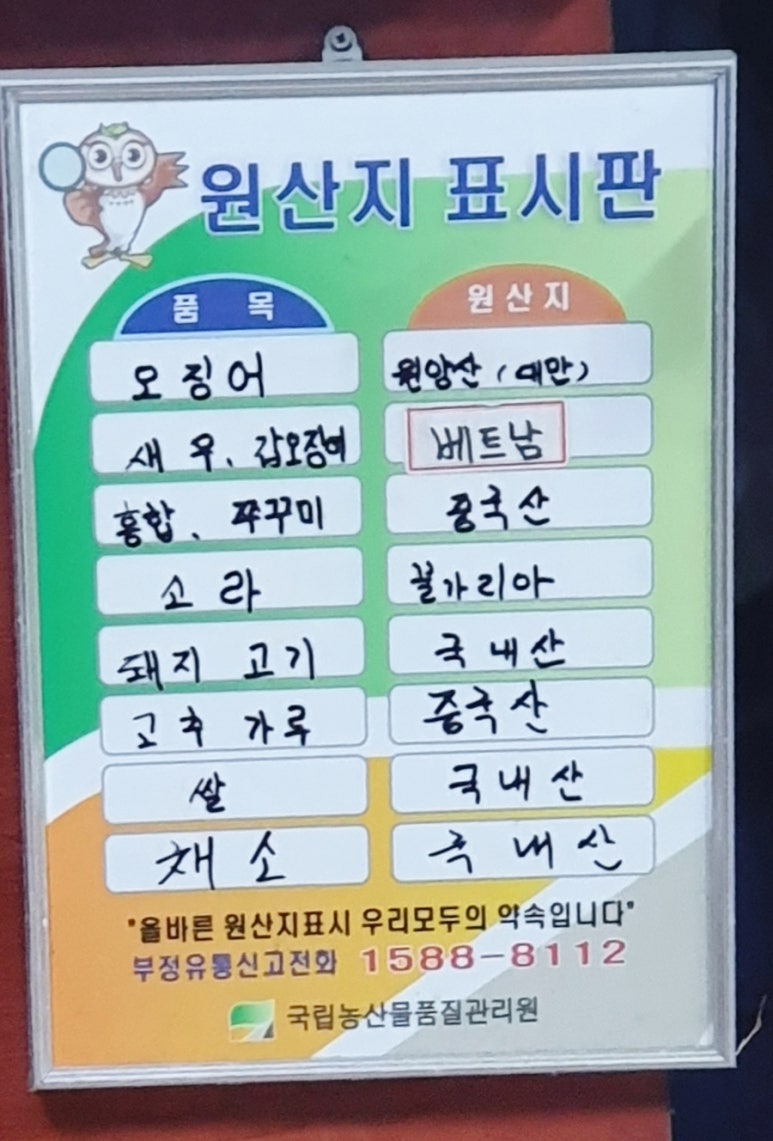 원산지 표시판
품 목 원산지
오징어 원양산 (대만)
새우, 갑오징어 베트남
홍합, 쭈꾸미 중국산
소라 불가리아
돼지 고기 국내산
고추 가루 중국산
쌀 국내산
채소 국내산
"올바른 원산지표시 우리모두의 약속입니다"
부정유통신고전화 1588-8112
국립농산물품질관리원